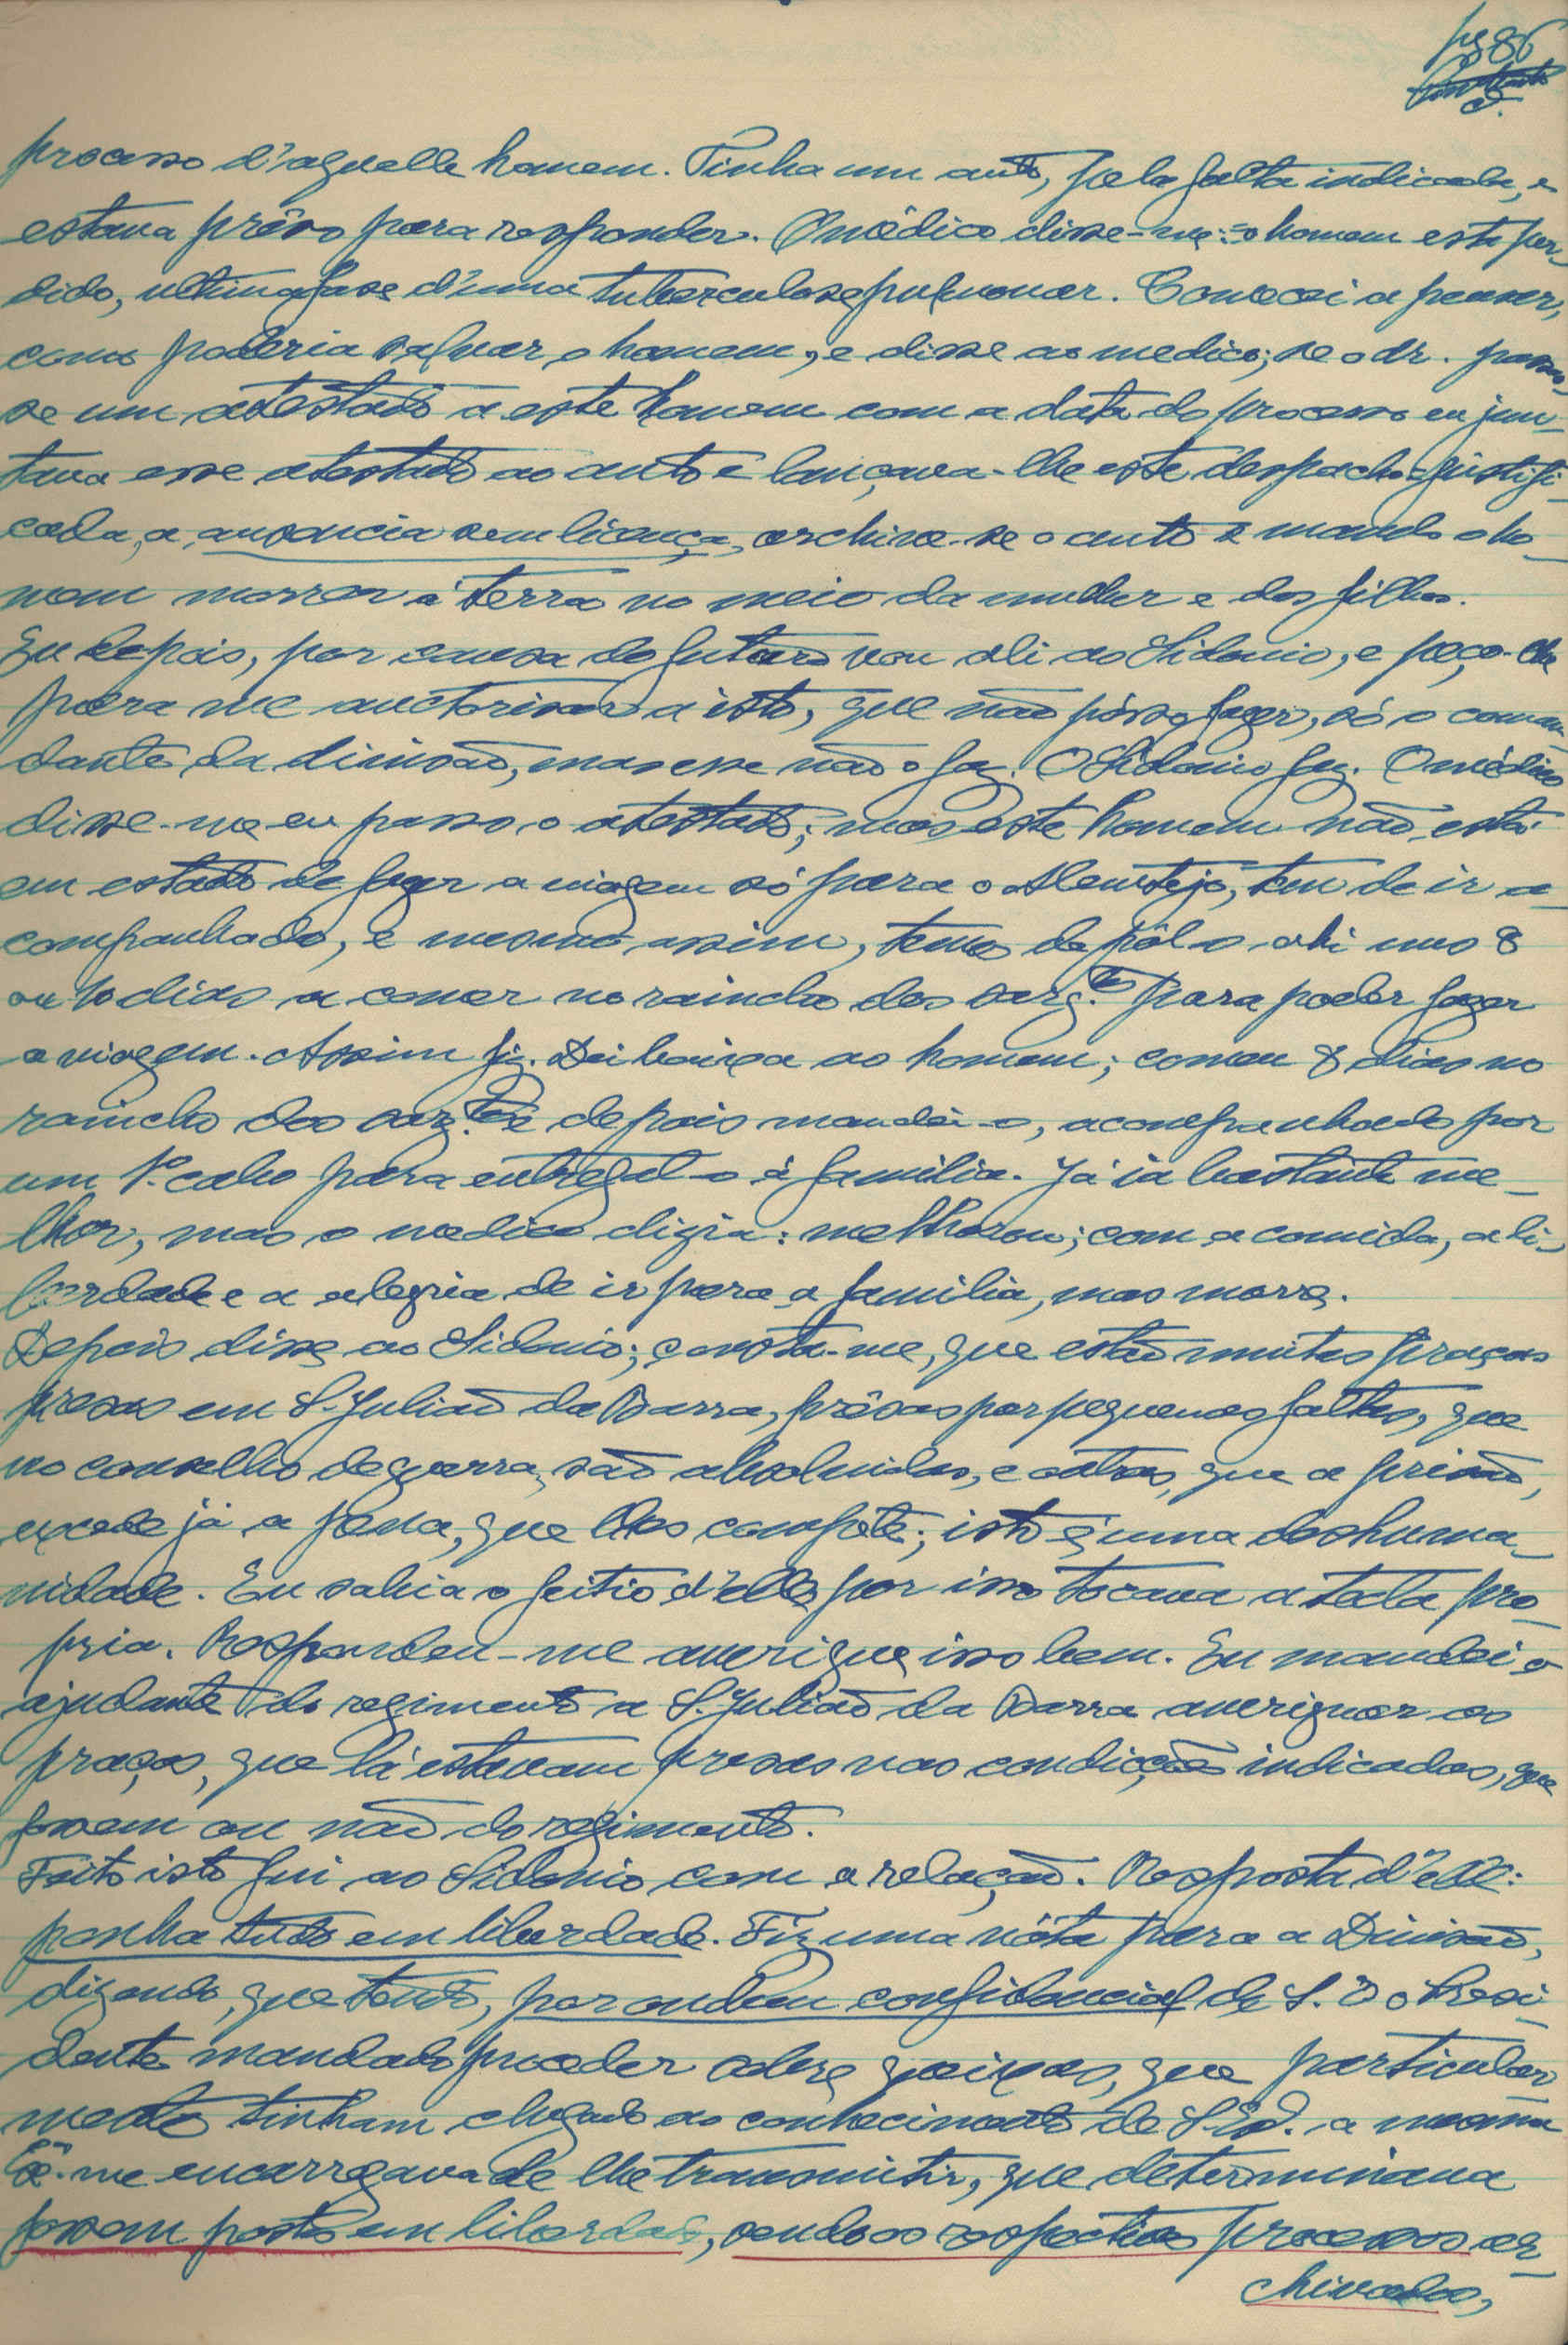 pg 86
processo d'aquelle homem. Tinha um auto, pela falta indicada, e
estava prêso para responder. O médico disse-me: = o homem está per-
dido, ultima fase d'uma tuberculose pulmonar. Comecei a pensar,
como poderia salvar o homem, e disse ao medico; se o dr. passas-
se um atestado a este homem com a data do processo eu jun-
tava esse atestado ao auto e lançava-lhe este despacho = justifi-
cada, a, ausencia sem licença, archive-se o auto e mando o ho-
mem morrer á terra no meio da mulher e dos filhos.
Eu depois, por causa do futuro vou ali ao Sidonio, e peço-lhe
para me auctorisar a isto, que não pósso fazer, só o coman-
dante da divisão, mas esse não o faz. O Sidonio faz. O médico
disse-me eu passo o atestado; mas este homem não está
em estado de fazer a viagem só para o Alemtejo, tem de ir a-
companhado, e mesmo assim, temos de pôl-o ahi uns 8
ou 10 dias a comer no rancho dos sarg.tos para poder fazer
a viagem. Assim fiz. Dei baixa ao homem; comeu 8 dias no
rancho dos sarg.tos e depois mandei-o, acompanhado por
um 1.º cabo para entregal-o á familia. Já ia bastante me-
lhor, mas o medico dizia: melhorou; com a comida, a li-
berdade e a alegria de ir para a familia, mas morre.
Depois disse ao Sidonio; consta-me, que estão muitas praças
presas em S. Julião da Barra, prêsas por pequenas faltas, que
no conselho de guerra, são absolvidas, e outras, que a prisão,
excede já a pena, que lhes compéte; isto é uma deshuma-
nidade. Eu sabia o feitio d'elle, por isso tocava a tecla pro-
pria. Respondeu-me averigue isso bem. Eu mandei o
ajudante do regimento a S. Julião da Barra averiguar as
praças, que lá estavam presas nas condições indicadas, que
fossem ou não do regimento.
Feito isto fui ao Sidonio com a relação. Resposta d'elle:
ponha tudo em liberdade. Fiz uma nóta para a Divisão,
dizendo, que tendo, por ordem confidencial de S. Ex.ª o Presi-
dente mandado proceder sobre queixas, que particular-
mente tinham chegado ao conhecimento de S. Ex.ª. a mesma
Ex.ª me encarregava de lhe transmitir, que determinava
fossem postos em liberdade, sendo os respectivos processos ar-
chivados,